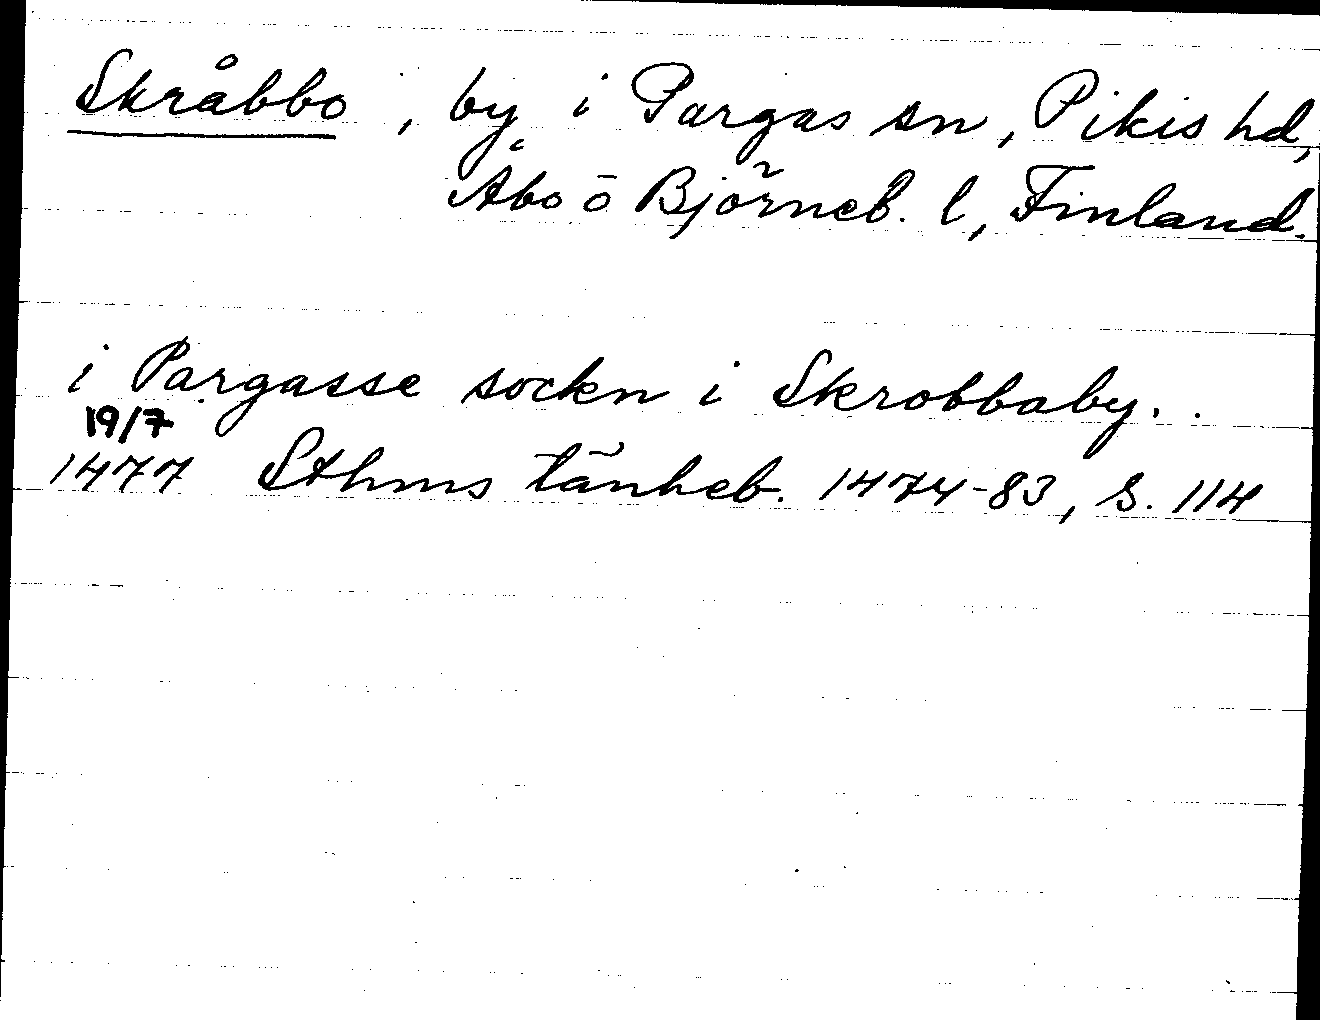 Skråbbo, by i Pargas sn, Pikis hd,
Åbo ō Björneb. l, Finland.
i Pargasse sockn i Skrobbaby. .
19/7
1477 Sthms tänkeb. 1474-83, s. 114